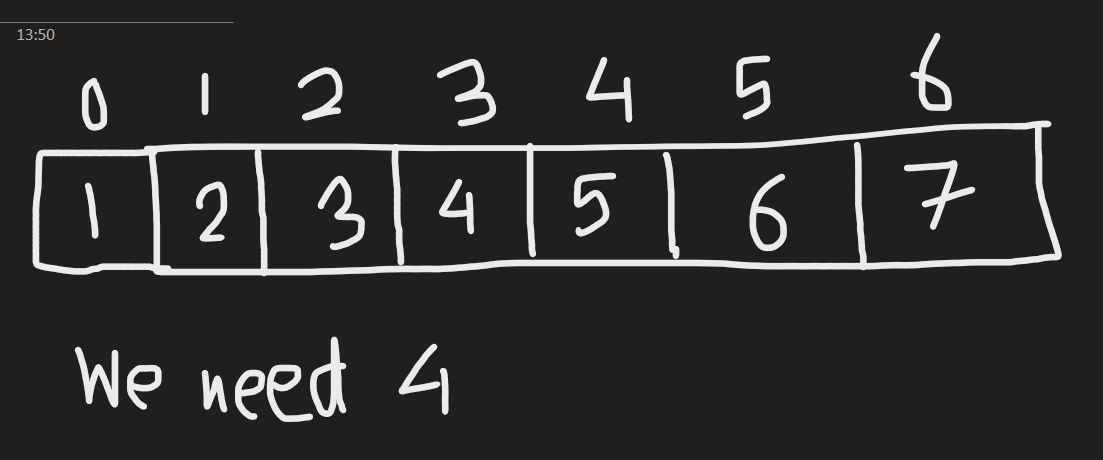 13:50
0 1 2 3 4 5 6
1 2 3 4 5 6 7
We need 4